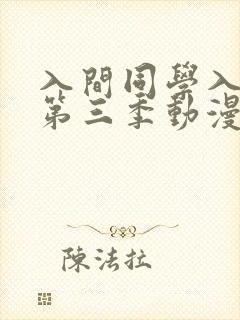 入間同學入
第三季動漫
陳法拉